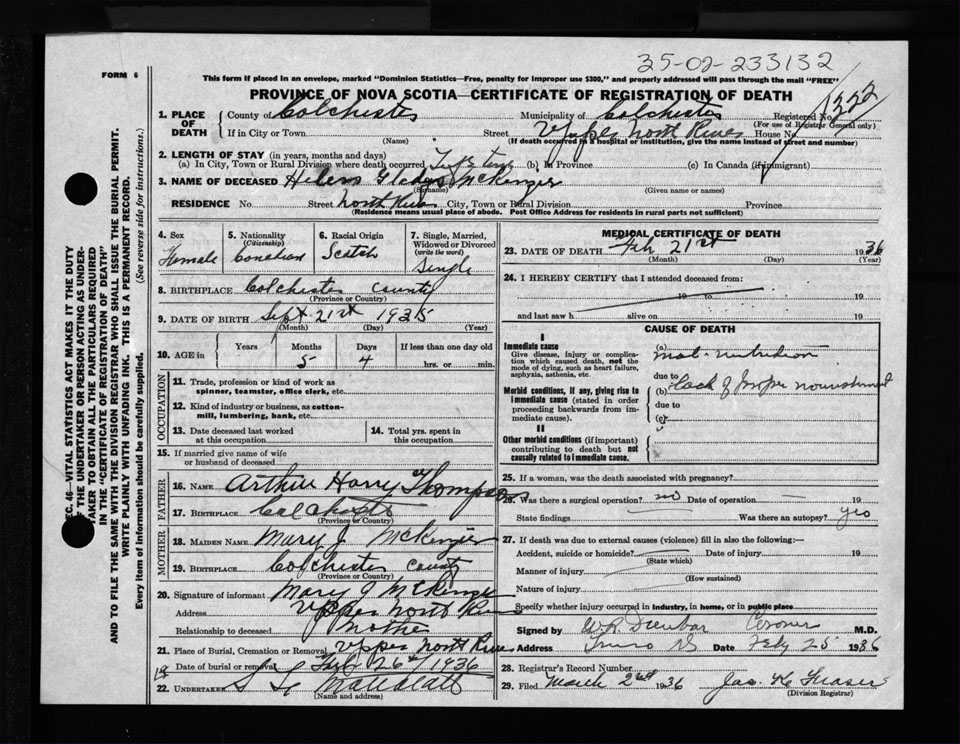 35-02-233132
FORM 6
This form if placed in an envelope, marked "Dominion Statistics—Free, penalty for improper use $300," and properly addressed will pass through the mail "FREE"
PROVINCE OF NOVA SCOTIA—CERTIFICATE OF REGISTRATION OF DEATH
1. PLACE OF DEATH
County of Colchester Municipality of Colchester Registered No. 1222
(For use of Registrar General only)
If in City or Town Street Upper North River House No.
(Name) (If death occurred in a hospital or institution, give the name instead of street and number)
2. LENGTH OF STAY (in years, months and days)
(a) In City, Town or Rural Division where death occurred Life time (b) In Province (c) In Canada (if immigrant)
3. NAME OF DECEASED Helen Gladys McKenzie
(Surname) (Given name or names)
RESIDENCE No. Street North River City, Town or Rural Division Province
(Residence means usual place of abode. Post Office Address for residents in rural parts not sufficient)
4. Sex
Female
5. Nationality (Citizenship)
Canadian
6. Racial Origin
Scotch
7. Single, Married, Widowed or Divorced (write the word)
Single
8. BIRTHPLACE Colchester County
(Province or Country)
9. DATE OF BIRTH Sept 21st 1935
(Month) (Day) (Year)
10. AGE in Years Months Days If less than one day old
5 4 hrs. or min.
OCCUPATION
11. Trade, profession or kind of work as spinner, teamster, office clerk, etc.
12. Kind of industry or business, as cotton-mill, lumbering, bank, etc.
13. Date deceased last worked at this occupation
14. Total yrs. spent in this occupation
15. If married give name of wife or husband of deceased
FATHER
16. NAME Arthur Harry Thompson
17. BIRTHPLACE Colchester
(Province or Country)
MOTHER
18. MAIDEN NAME Mary J McKenzie
19. BIRTHPLACE Colchester County
(Province or Country)
20. Signature of informant Mary J McKenzie
Address Upper North River
Relationship to deceased Mother
21. Place of Burial, Cremation or Removal Upper North River
Date of burial or removal Feb 26th 1936
22. UNDERTAKER
(Name and address)
MEDICAL CERTIFICATE OF DEATH
23. DATE OF DEATH Feb 21st 1936
(Month) (Day) (Year)
24. I HEREBY CERTIFY that I attended deceased from:
19 to 19
and last saw h alive on 19
CAUSE OF DEATH
I
Immediate cause
Give disease, injury or complication which caused death, not the mode of dying, such as heart failure, asphyxia, asthenia, etc.
(a) Mal-nutrition
due to
Morbid conditions, if any, giving rise to immediate cause (stated in order proceeding backwards from immediate cause).
(b) lack of proper nourishment
due to
(c)
II
Other morbid conditions (if important) contributing to death but not causally related to immediate cause.
25. If a woman, was the death associated with pregnancy?
26. Was there a surgical operation? no Date of operation — 19
State findings Was there an autopsy? yes
27. If death was due to external causes (violence) fill in also the following:—
Accident, suicide or homicide? Date of injury 19
(State which)
Manner of injury
(How sustained)
Nature of injury
Specify whether injury occurred in industry, in home, or in public place
Signed by W.R. Dunbar Coroner M.D.
Address Truro NS Date Feby 25 1936
28. Registrar's Record Number
29. Filed March 2nd 1936 Jas. K Fraser
(Division Registrar)
SEC. 46—VITAL STATISTICS ACT MAKES IT THE DUTY
OF THE UNDERTAKER OR PERSON ACTING AS UNDER-
TAKER TO OBTAIN ALL THE PARTICULARS REQUIRED
IN THE "CERTIFICATE OF REGISTRATION OF DEATH"
AND TO FILE THE SAME WITH THE DIVISION REGISTRAR WHO SHALL ISSUE THE BURIAL PERMIT.
WRITE PLAINLY WITH UNFADING INK. THIS IS A PERMANENT RECORD.
Every item of information should be carefully supplied. (See reverse side for instructions.)